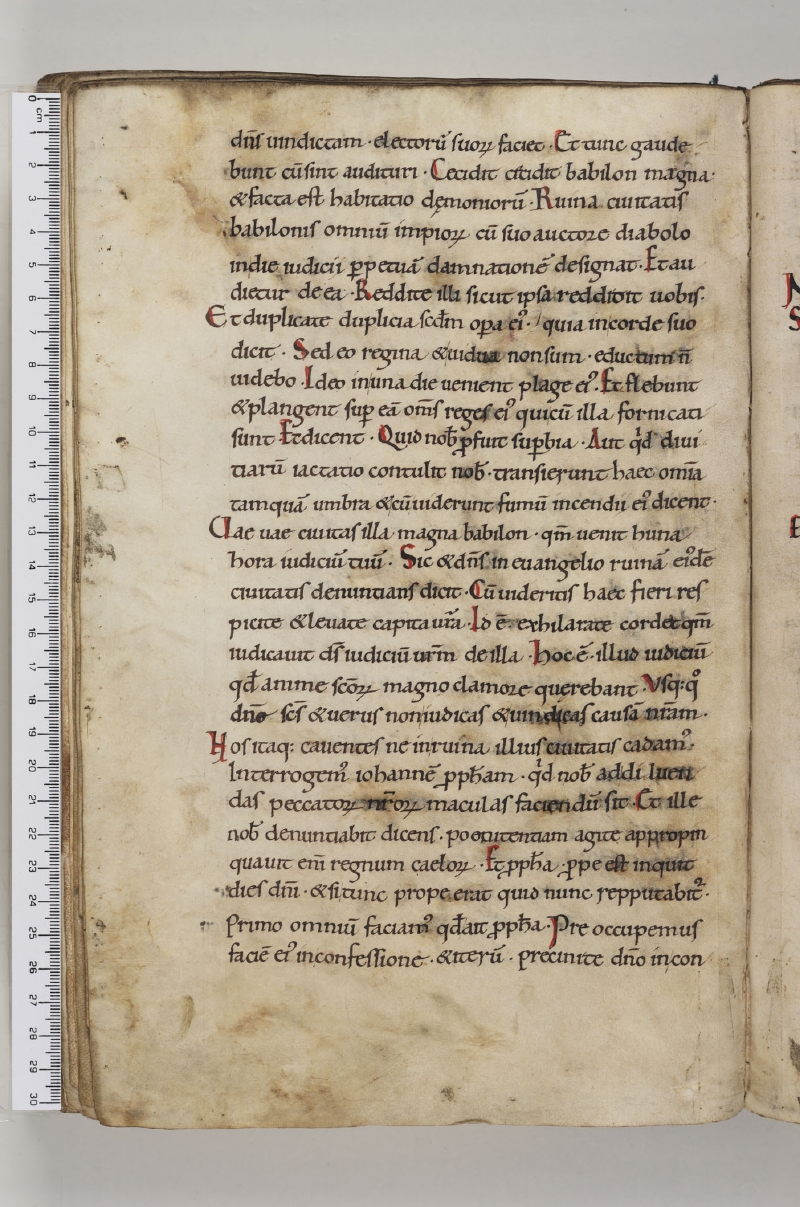 dn̄s uindictam · electorū suoꝝ faciet · Et tunc gaude
bunt cū sint audituri · Cecidit cecidit babilon magna ·
& facta est habitatio dęmoniorū · Ruina ciuitatis
babilonis omniū impioꝝ cū suo auctore diabolo
in die iudicii ꝑpetuā damnationē designat · Et au
dietur de ea · Reddite illi sicut ipsa reddidit uobis ·
Et duplicate duplicia scd̄m opa ei᾽ · quia in corde suo
dicit · Sed eo regina & uidua non sum · et luctum n̄
uidebo · Ideo in una die uenient plage ei᾽ · Et flebunt
& plangent suꝑ eā om̄s reges ei᾽ qui cū illa fornicati
sunt Et dicent · Quid nob̄ ꝓfuit suꝑbia · Aut qͥd diui
tiarū iactatio contulit nob̄ · transierunt haec om̄ia
tamquā umbra & cū uiderunt fumū incendii ei᾽ dicent ·
Uae uae ciuitas illa magna babilon · qm̄ uenit huna
hora iudiciū tuū · Sic & dn̄s in euangelio ruinā ei᾽dē
ciuitatis denuntians dicit · Cū uideritis haec fieri res
picite & leuate capita ur̄a · Id ē · exhilarate corde · qm̄
iudicauit ds̄ iudiciū ur̄m de illa · Hoc ē · illud iudiciū
qd̄ animę sc̄oꝝ magno clamore querebant · Vsq: qͦ
dn̄e sc̄s & uerus non iudicas & uindicas causā nr̄am ·
Nos itaq: cauentes ne in ruina illius ciuitatis cadam᾽ ·
Interrogem᾽ iohannē ꝓph̄am · qͥd nob̄ addiluen
das peccatoꝝ nr̄oꝝ maculas faciendū sit · Et ille
nob̄ denuntiabit dicens · poenitentiam agite appropin
quauit eni͞ regnum caeloꝝ · Et ꝓph̄a · ꝓpe est inquit
dies dn̄i · & si tunc prope erat quid nunc repputabit᾽ ·
Primo omniū faciam᾽ qd̄ ait ꝓph̄a · Pre occupemus
faciē ei᾽ in confessione · & iterū · precinite dn̄o in con